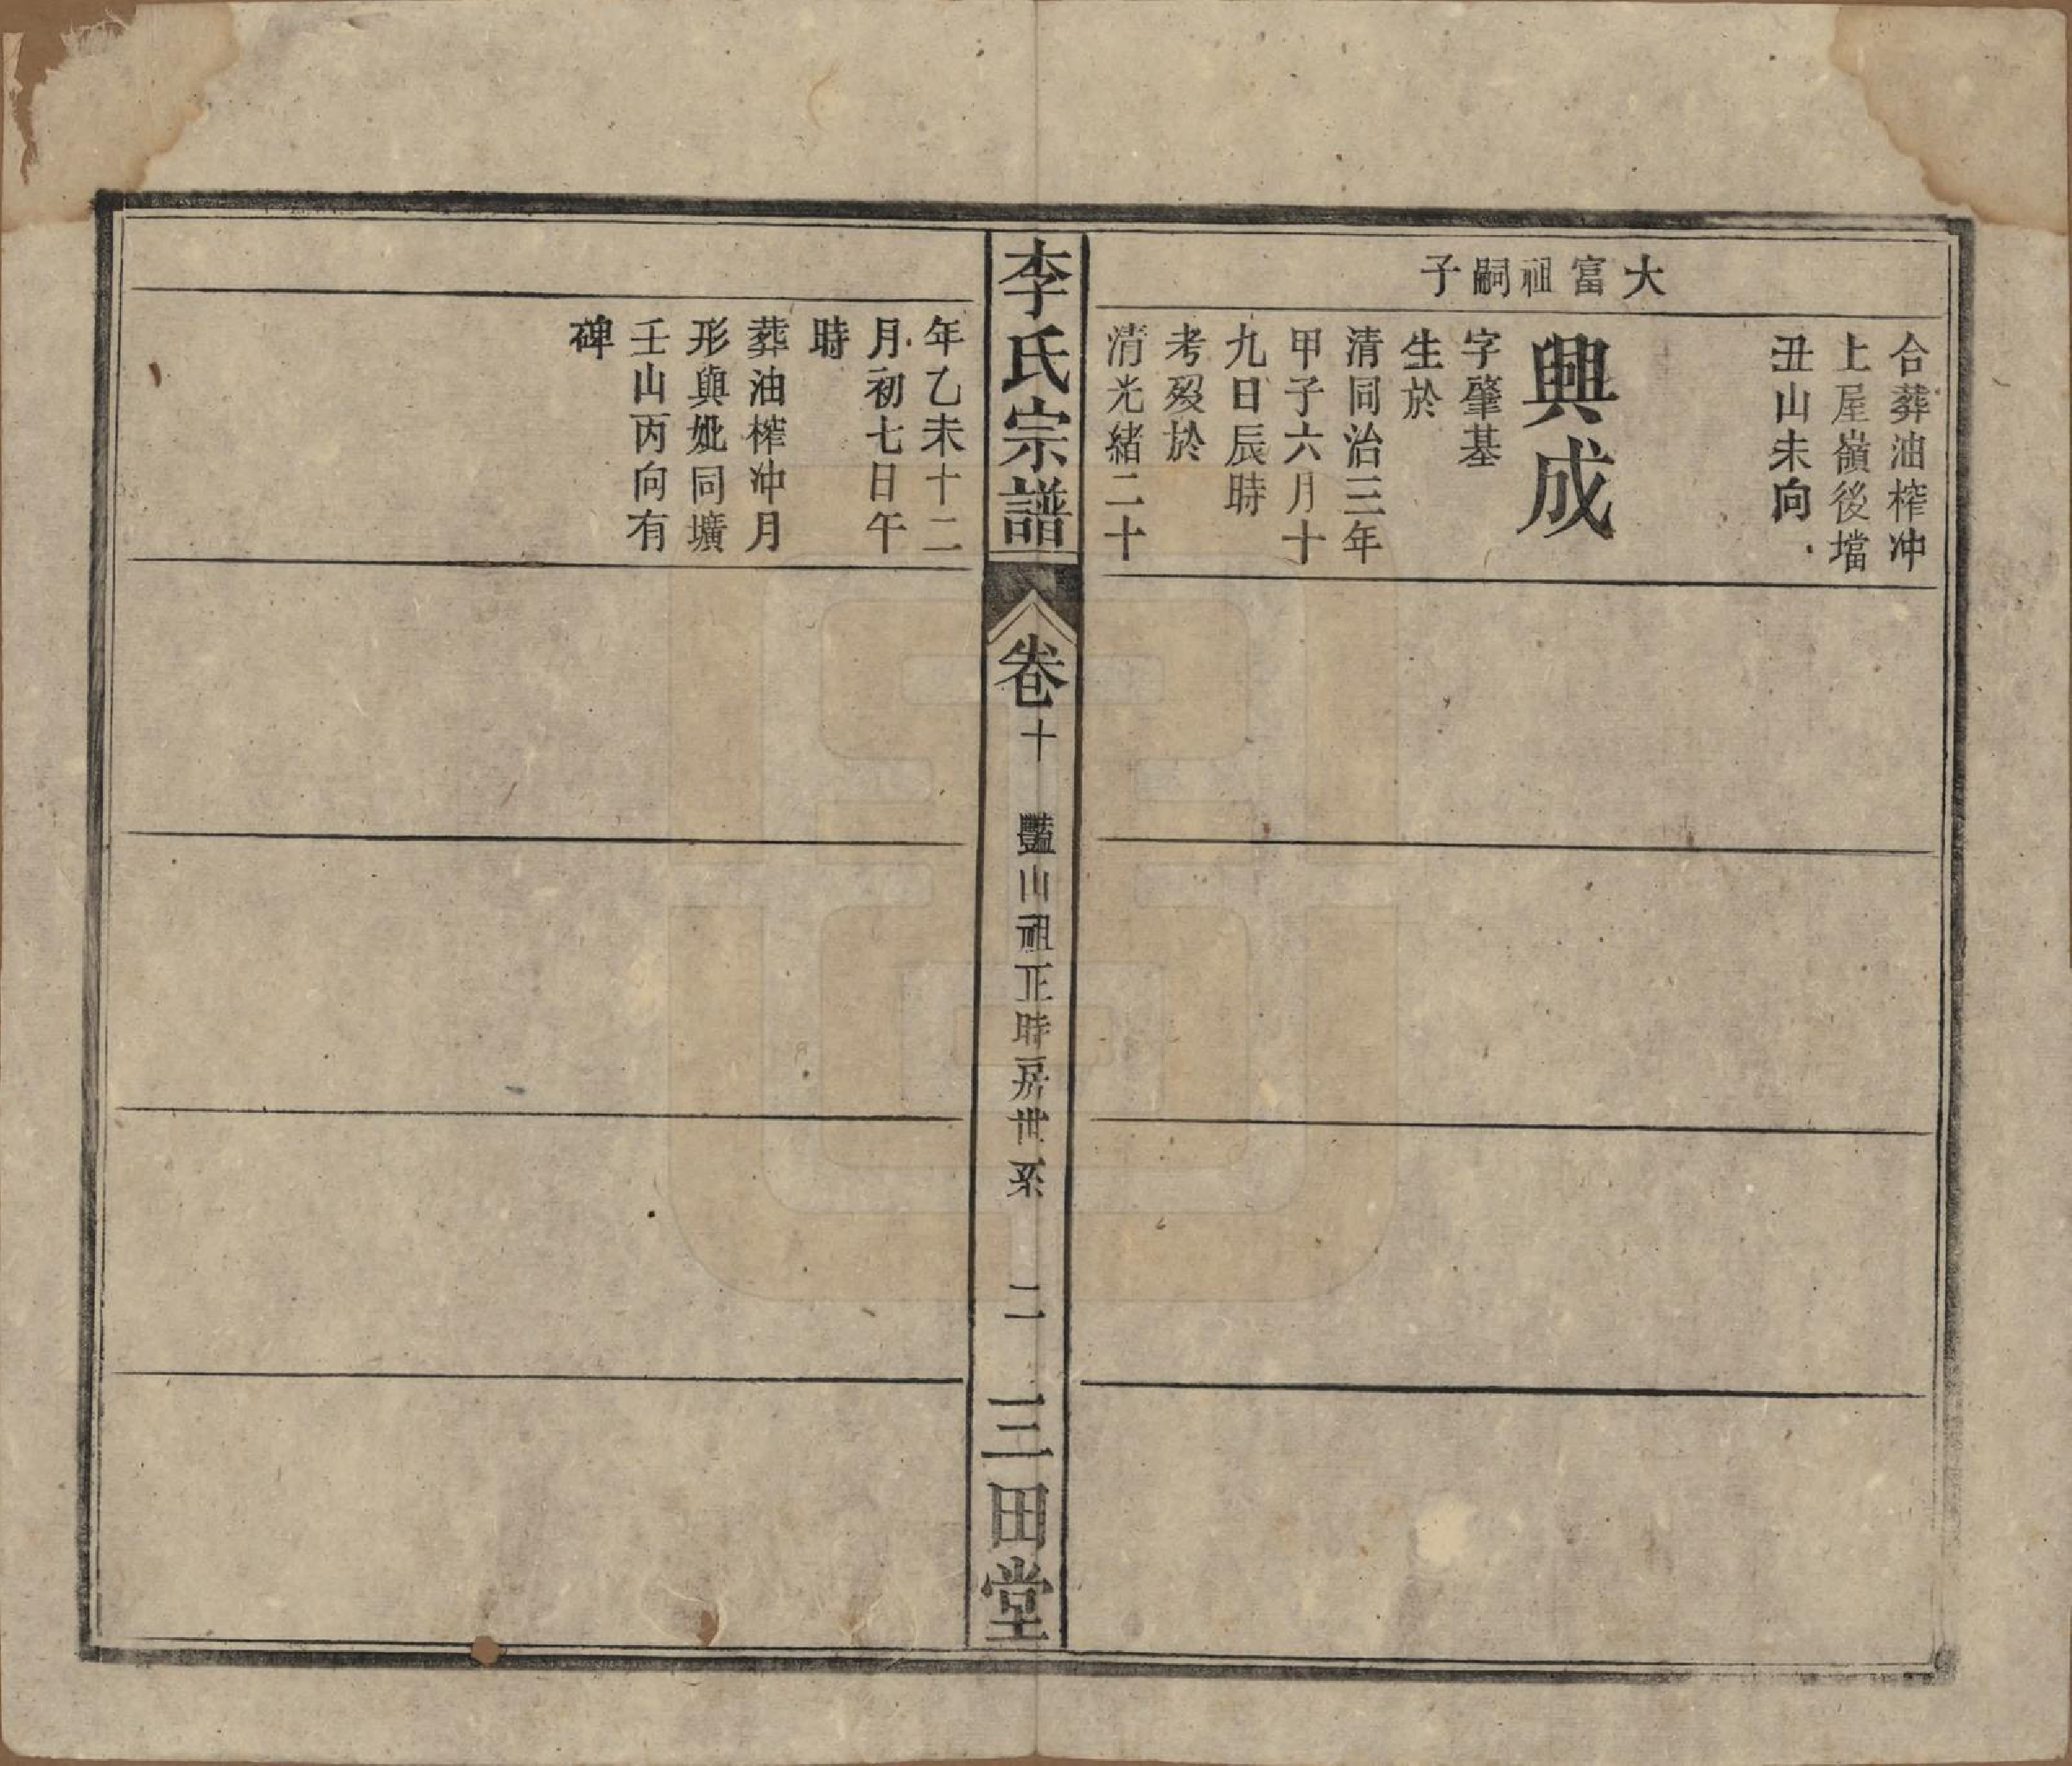 大富祖嗣子
合葬油榨冲
上屋嶺後壋
丑山未向
興成
字肇基
生於
清同治三年
甲子六月十
九日辰時
考歿於
清光緒二十
李氏宗譜
卷十
豔山祖正時房世系
二
三田堂
年乙未十二
月初七日午
時
葬油榨冲月
形與妣同壙
壬山丙向有
碑